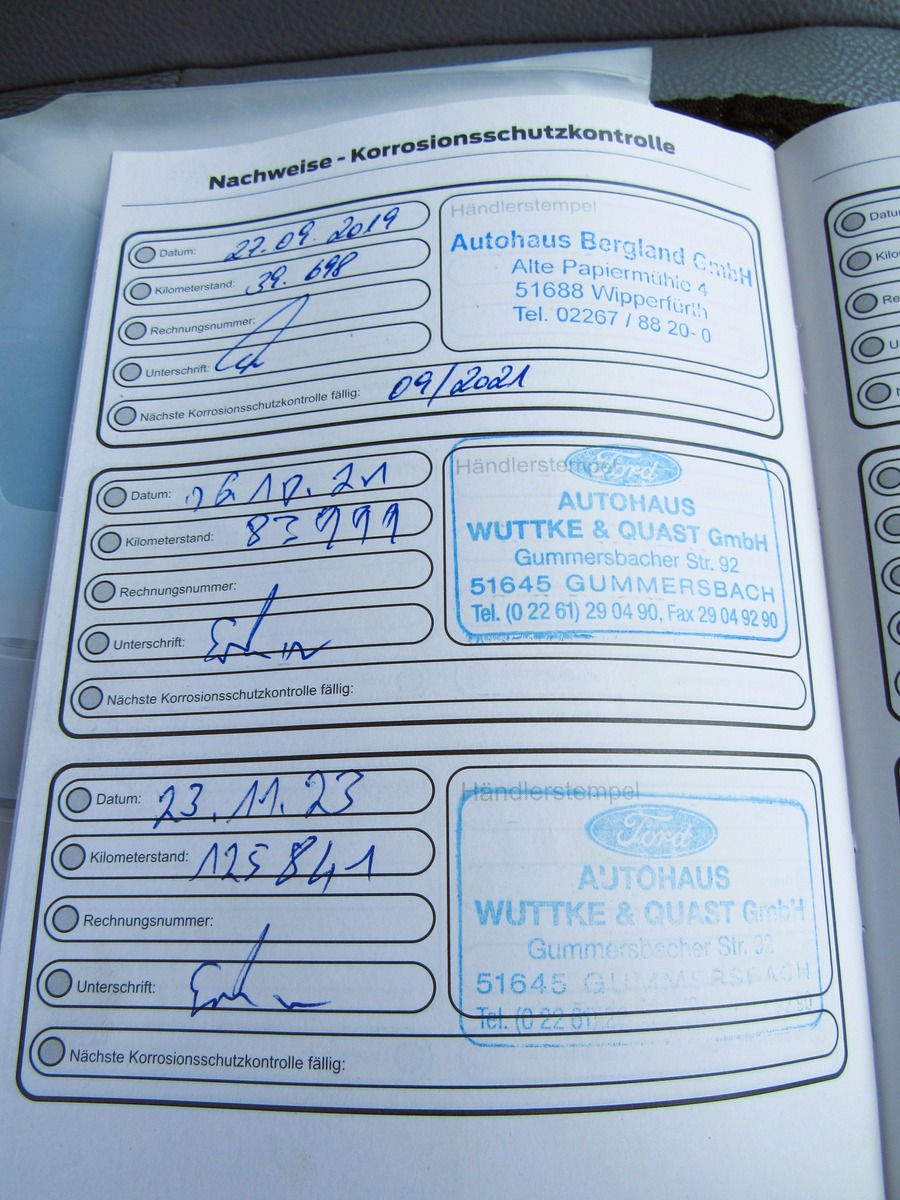 Nachweise - Korrosionsschutzkontrolle
Datum: 27.09.2019
Kilometerstand: 39.698
Rechnungsnummer:
Unterschrift:
Nächste Korrosionsschutzkontrolle fällig: 09/2021
Händlerstempel
Autohaus Bergland GmbH
Alte Papiermühle 4
51688 Wipperfürth
Tel. 02267 / 88 20- 0
Datum: 06.10.21
Kilometerstand: 83999
Rechnungsnummer:
Unterschrift:
Nächste Korrosionsschutzkontrolle fällig:
Händlerstempel
Ford
AUTOHAUS
WUTTKE & QUAST GmbH
Gummersbacher Str. 92
51645 GUMMERSBACH
Tel. (0 22 61) 29 04 90, Fax 29 04 92 90
Datum: 23.11.23
Kilometerstand: 125841
Rechnungsnummer:
Unterschrift:
Nächste Korrosionsschutzkontrolle fällig:
Händlerstempel
Ford
AUTOHAUS
WUTTKE & QUAST GmbH
Gummersbacher Str. 92
51645 GUMMERSBACH
Tel. (0 22 61) 2 90
Datu
Kilo
Re
U